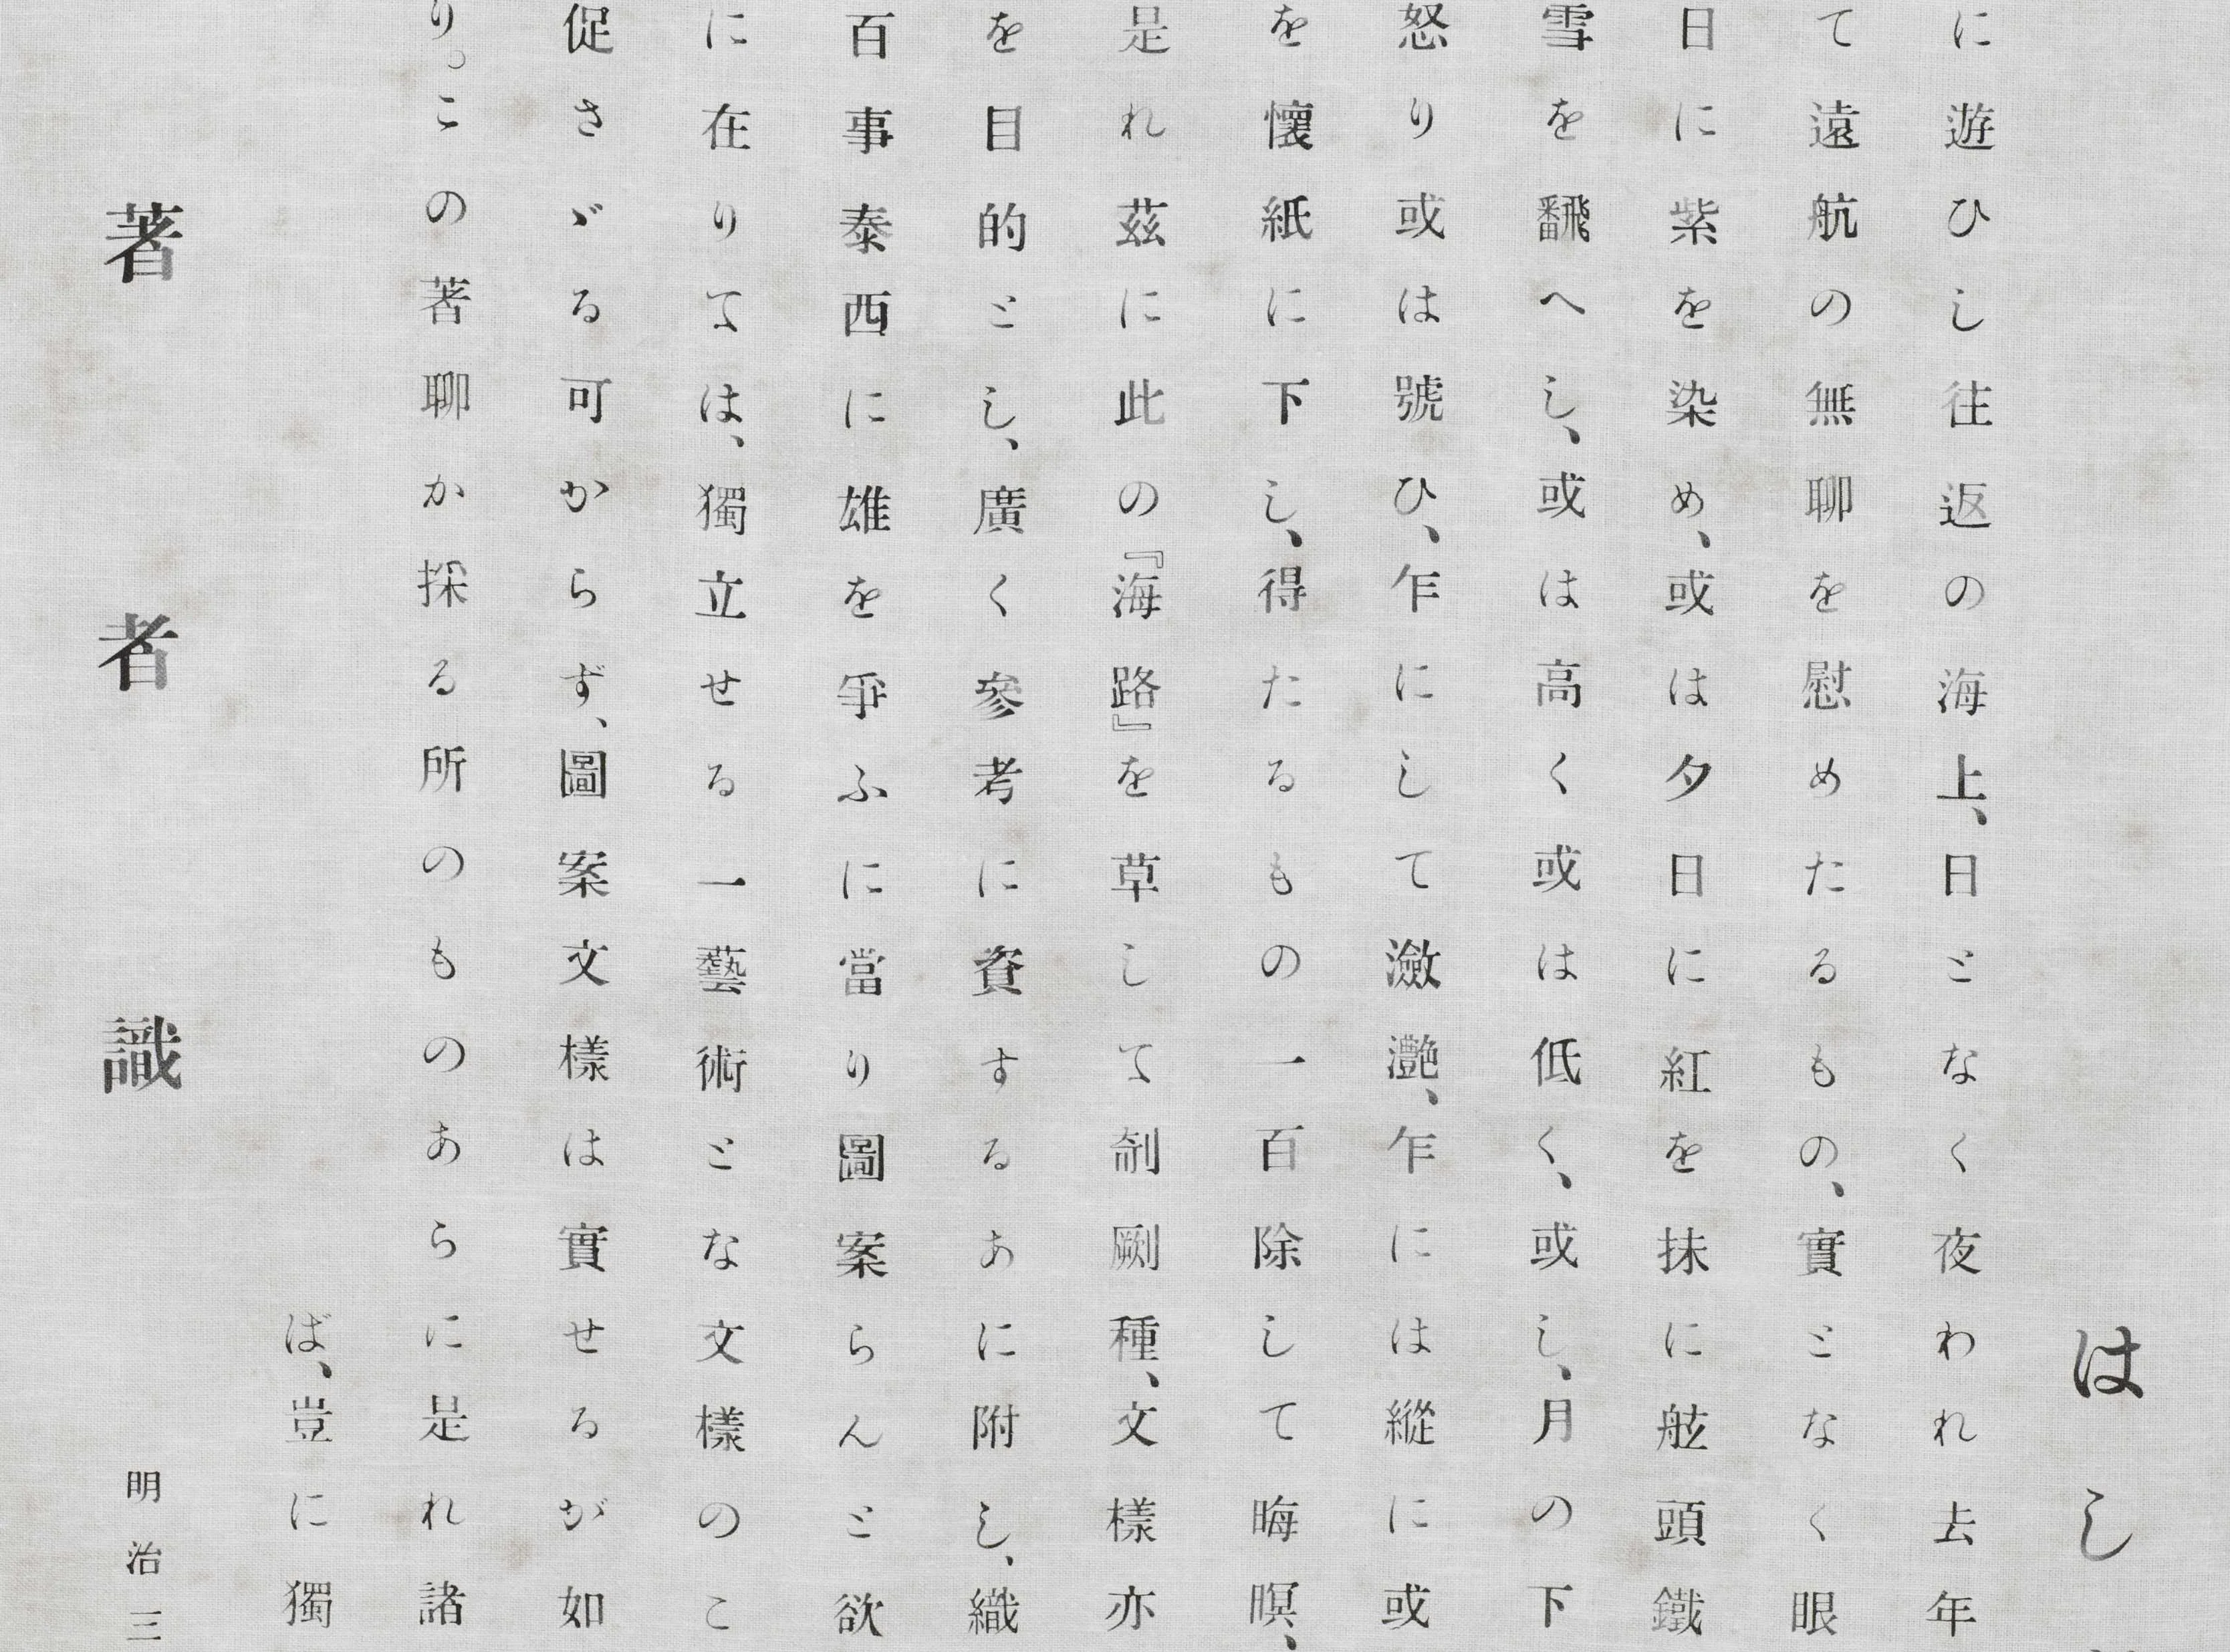 はし
に遊ひし往返の海上、日となく夜われ去年
て遠航の無聊を慰めたるもの、實となく眼
日に紫を染め、或は夕日に紅を抹に舷頭鐵
雪を飜へし、或は高く或は低く、或し、月の下
怒り或は號ひ、乍にして瀲灧、乍には縱に或
を懷紙に下し、得たるもの一百除して晦暝、
是れ茲に此の『海路』を草して剞劂種、文樣亦
を目的とし、廣く參考に資するあに附し、織
百事泰西に雄を爭ふに當り圖案らんと欲
に在りては、獨立せる一藝術とな文樣のこ
促さゞる可からず、圖案文樣は實せるが如
り。この著聊か採る所のものあらに是れ諸
ば、豈に獨
著者識
明治三